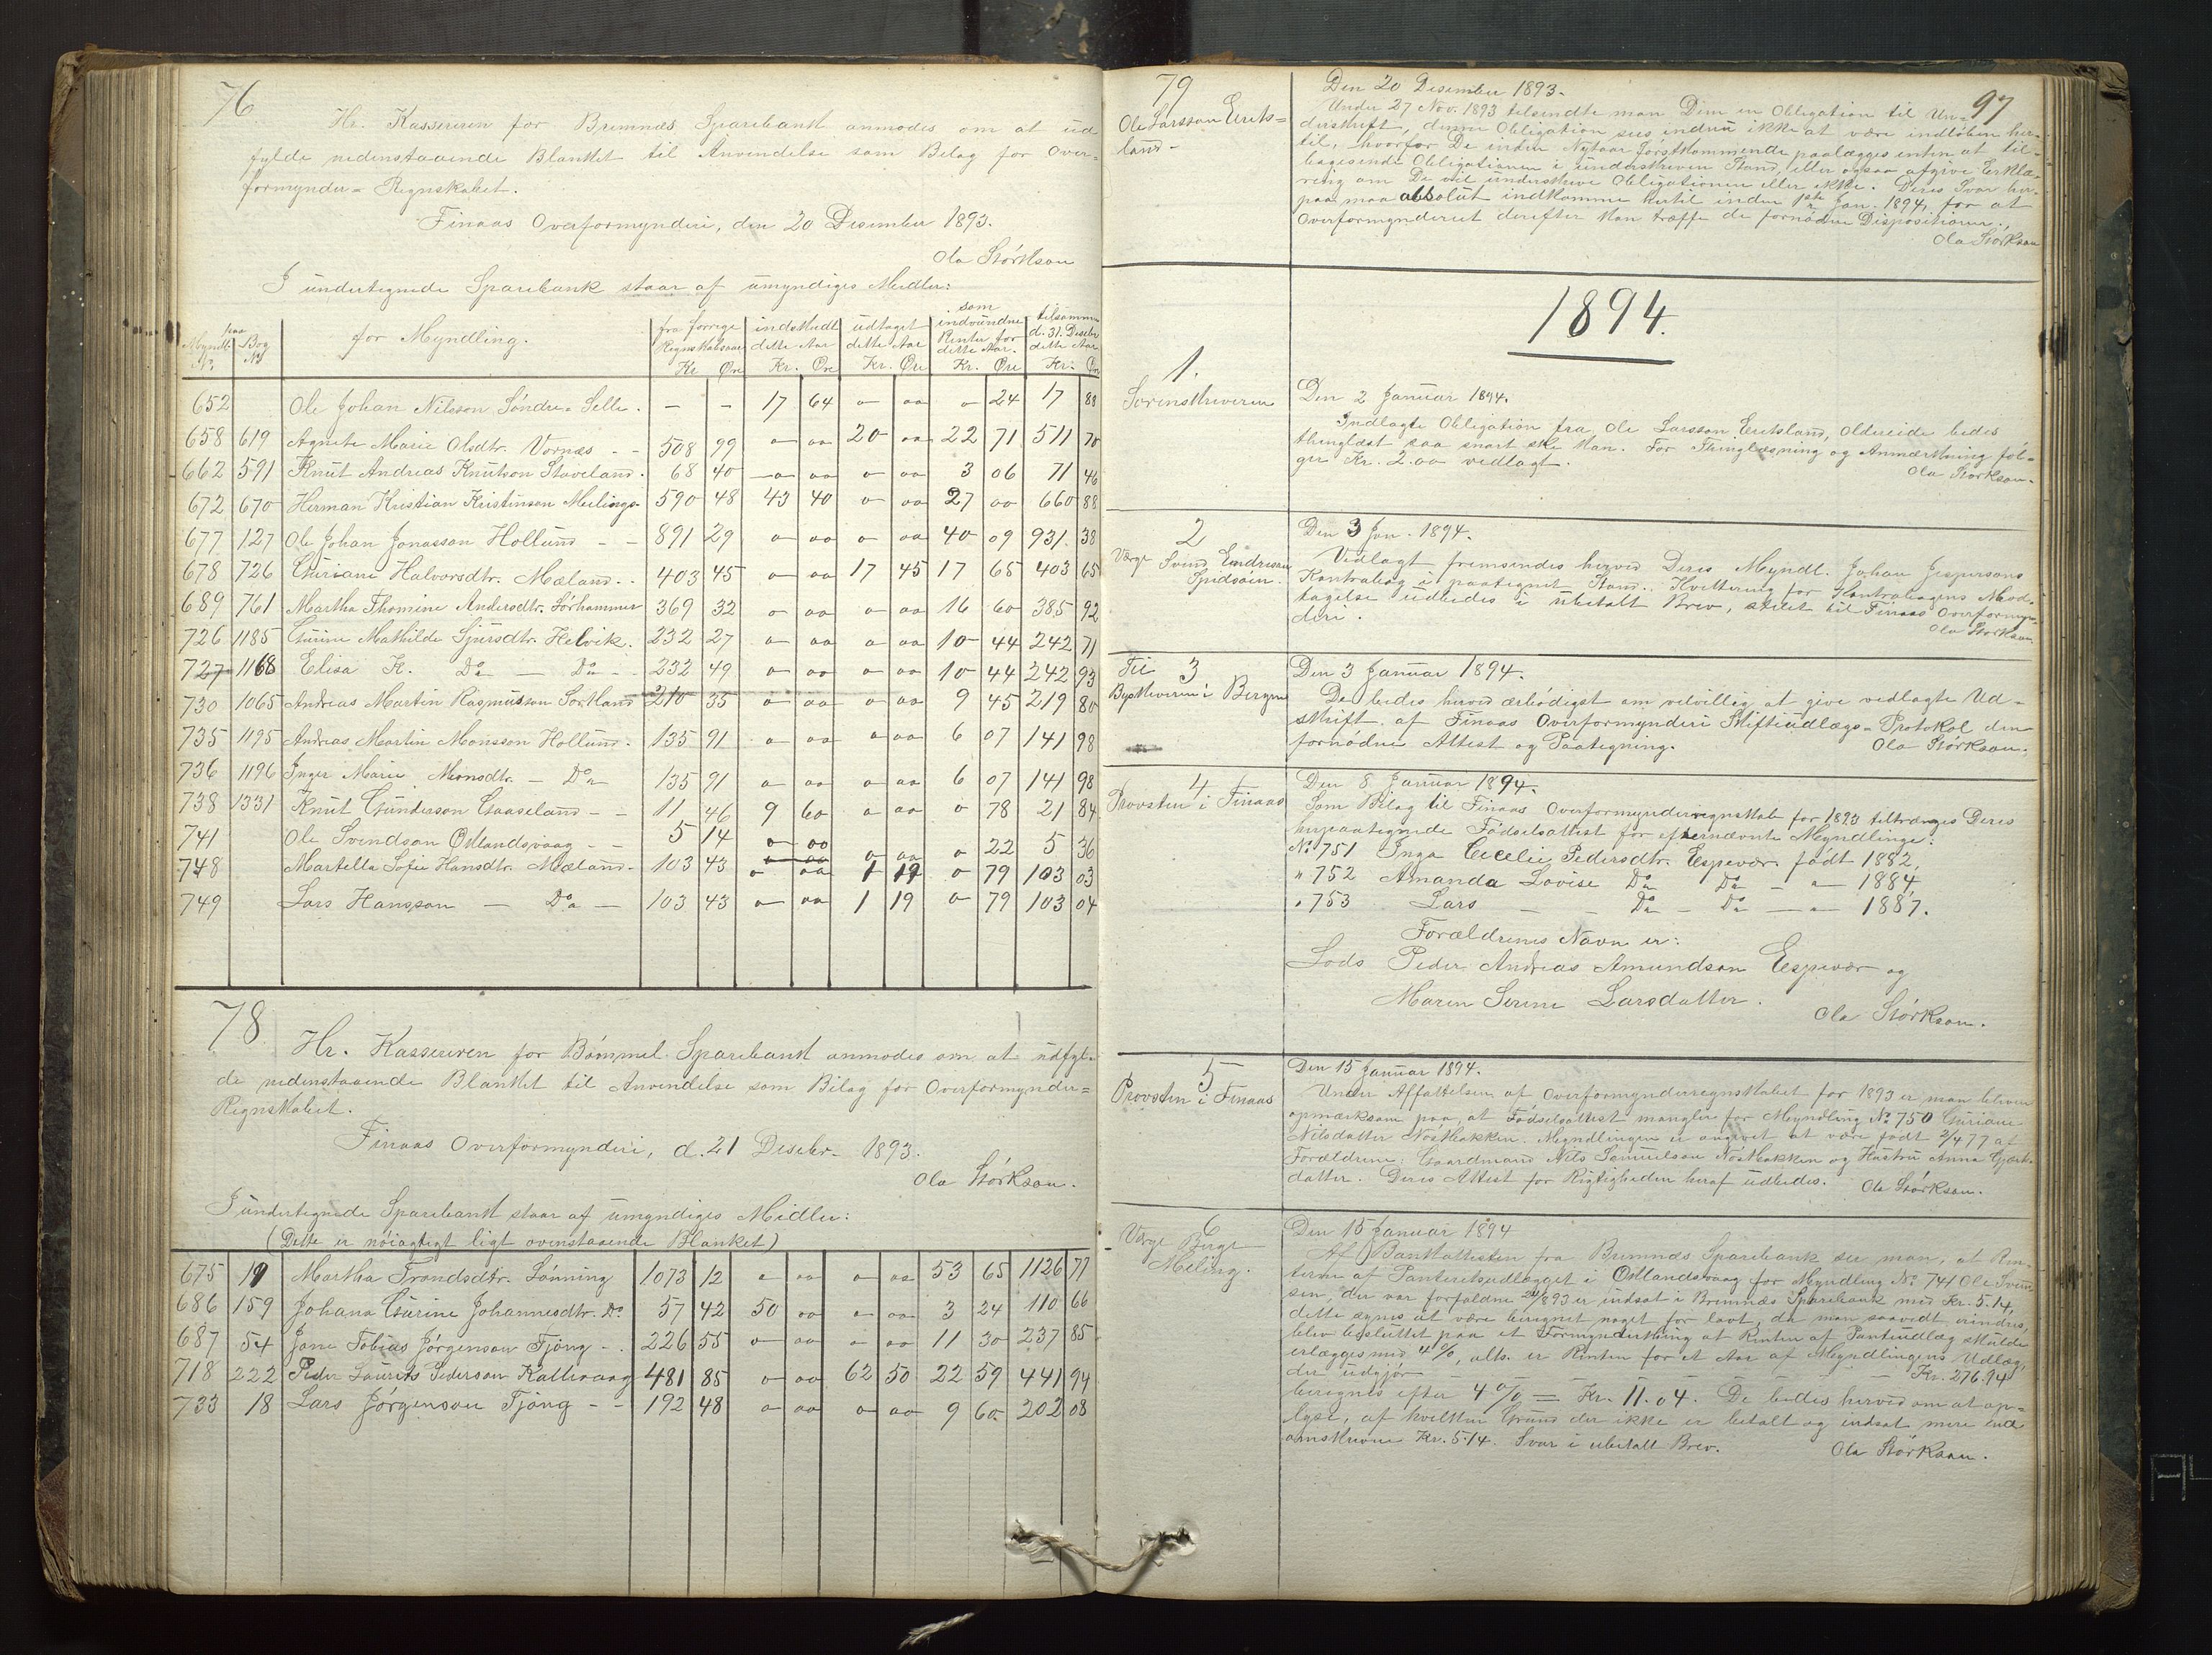 76.
Hr. Kassereren for Bremnæs Sparebank anmodes om at ud
fylde nedenstaaende Blanket til Anvendelse som Bilag for Over-
formynder-Regnskabet.
Finaas Overformynderi, den 20 Desember 1893.
Ola Størkson
I undertegnede Sparebank staar af umyndiges Midler:
Myndl. No. | paa Bog No | for Myndling. | fra forrige Regnskabsaar Kr Øre | indskudt dette Aar Kr. Øre | udtaget dette Aar Kr. Øre | som indvundne Renter for dette Aar. Kr. Øre | tilsammen d. 31. Desebr dette Aar Kr. Øre
652 Ole Johan Nilsson Søndre-Selle. – – 17 64 0 00 0 24 17 88
658 619 Agnete Marie Olsdtr. Vornæs - - 508 99 0 00 20 00 22 71 511 70
662 591 Knut Andreas Knutson Staveland. 68 40 0 00 0 00 3 06 71 46
672 670 Herman Kristian Kristinson Meling. 590 48 43 40 0 00 27 00 660 88
677 127 Ole Johan Jonasson Hollund - - 891 29 0 00 0 00 40 09 931 38
678 726 Guriane Halvorsdtr. Mæland. . 403 45 0 00 17 45 17 65 403 65
689 761 Martha Thomine Andersdtr. Sørhammer 369 32 0 00 0 00 16 60 385 92
726 1185 Gurine Mathilde Sjursdtr. Helvik. 232 27 0 00 0 00 10 44 242 71
727 1168 Elisa K. Do — Do - - 232 49 0 00 0 00 10 44 242 93
730 1065 Andreas Martin Rasmusson Sortland 210 35 0 00 0 00 9 45 219 80
735 1195 Andreas Martin Monsson Hollund. 135 91 0 00 0 00 6 07 141 98
736 1196 Inger Marie Monsdtr. — Do 135 91 0 00 0 00 6 07 141 98
738 1331 Knut Gunderson Gaaseland - - 11 46 9 60 0 00 0 78 21 84
741 Ole Svendson Østlandsvaag - - 5 14 0 00 0 00 0 22 5 36
748 Martella Sofie Hansdtr. Mæland. 103 43 0 00 1 19 0 79 103 03
749 Lars Hansson — Do — 103 43 0 00 1 19 0 79 103 04
78
Hr. Kassereren for Bømmel Sparebank anmodes om at udfyl-
de nedenstaaende Blanket til Anvendelse som Bilag for Overformynder-
Regnskabet.
Finaas Overformynderi, d. 21 Desebr. 1893.
Ola Størkson.
I undertegnede Sparebank staar af umyndiges Midler:
(Dette er nøiagtigt ligt ovenstaaende Blanket)
675 19 Martha Trondsdtr. Lønning 1073 12 0 00 0 00 53 65 1126 77
686 159 Johana Gurine Johannesdtr. Do 57 42 50 00 0 00 3 24 110 66
687 54 Jone Tobias Jørgenson Fjong - . 226 55 0 00 0 00 11 30 237 85
718 222 Peder Laurits Pederson Kallevaag 481 85 0 00 62 50 22 59 441 94
733 18 Lars Jørgenson Fjong - - 192 48 0 00 0 00 9 60 202 08
97
79
Ole Larsson Eriks-
land-
Den 20 Desember 1893.
Under 27 Nov. 1893 tilsendte man Dem en Obligation til Un-
derskrift, denne Obligation sees endnu ikke at være indløben her-
til, hvorfor De inden Nytaar førstkommende paalægges enten at til-
bagesende Obligationen i underskreven Stand, eller ogsaa afgive Erklæ-
ring om De vil underskrive Obligationen eller ikke. Deres Svar her-
paa maa absolut indkomme hertil inden 1ste Jan. 1894, for at
Overformynderiet derefter kan træffe de fornødne Dispositioner.
Ola Størkson
1894.
1.
Sorenskriveren
Den 2 Januar 1894.
Indlagte Obligation fra Ole Larsson Eriksland, Oldereide bedes
thinglæst saa snart ske kan. For Thinglæsning og Anmærkning føl-
ger Kr. 2.00 vedlagt.
Ola Størkson.
2
Værge Svend Endreson
Spidsøen.
Den 3 Jan. 1894.
Vedlagt fremsendes herved Deres Myndl. Johan Jespersons
Kontrabog i paategnet Stand. Kvittering for Kontrabogens Mod-
tagelse udbedes i ubetalt Brev, stilet til Finaas Overformyn-
deri.
Ola Størkson
Til 3
Byskriveren i Bergen
Den 3 Januar 1894.
De bedes herved ærbødigst om velvillig at give vedlagte Ud-
skrift af Finaas Overformynderi Skifteudlægs-Protokol den
fornødne Attest og Paategning.
Ola Størkson.
4
Provsten i Finaas
Den 8 Januar 1894.
Som Bilag til Finaas Overformynderregnskab for 1893 tiltrænges Deres
herpaategnede Fødselsattest for efternævnte Myndlinge:
No 751 Inga Cecelie Pedersdtr. Espevær. født 1882,
" 752 Amanda Lovise Do Do - " - 1884,
" 753 Lars — - Do - Do — " — 1887.
Forældrenes Navn er:
Lods Peder Andreas Amundson Espevær og
Maren Serine Larsdatter.
Ola Størkson.
5
Provsten i Finaas
Den 15 Januar 1894.
Under Affattelsen af Overformynderregnskabet for 1893 er man bleven
opmærksom paa, at Fødselsattest mangler for Myndling No 750 Guriane
Nilsdatter Nøsbakken. Myndlingen er angivet at være født 2/4 77 af
Forældrene: Gaardmand Nils Samuelson Nøsbakken og Hustru Anna Gjert-
datter. Deres Attest for Rigtigheden heraf udbedes.
Ola Størkson.
6
Værge Berge
Meling.
Den 15 Januar 1894
Af Bankattesten fra Bremnæs Sparebank ser man, at Ren-
terne af Panteretsudlægget i Østlandsvaag for Myndling No 741 Ole Svend
sen, der var forfaldne 24/8 93 er indsat i Bremnæs Sparebank med Kr. 5.14,
dette synes at være beregnet noget for lavt, da man saavidt erindres,
blev besluttet paa et Formynderthing at Renten af Panteudlæg skulde
erlægges med 4 %, alts. er Renten for et Aar af Myndlingens Udlæg,
der udgjør — — — — Kr. 276.94
beregnes efter 4 % = Kr. 11.04. De bedes herved om at op-
lyse, af hvilken Grund der ikke er betalt og indsat mere end
omskrevne Kr. 5.14. Svar i ubetalt Brev.
Ola Størkson.